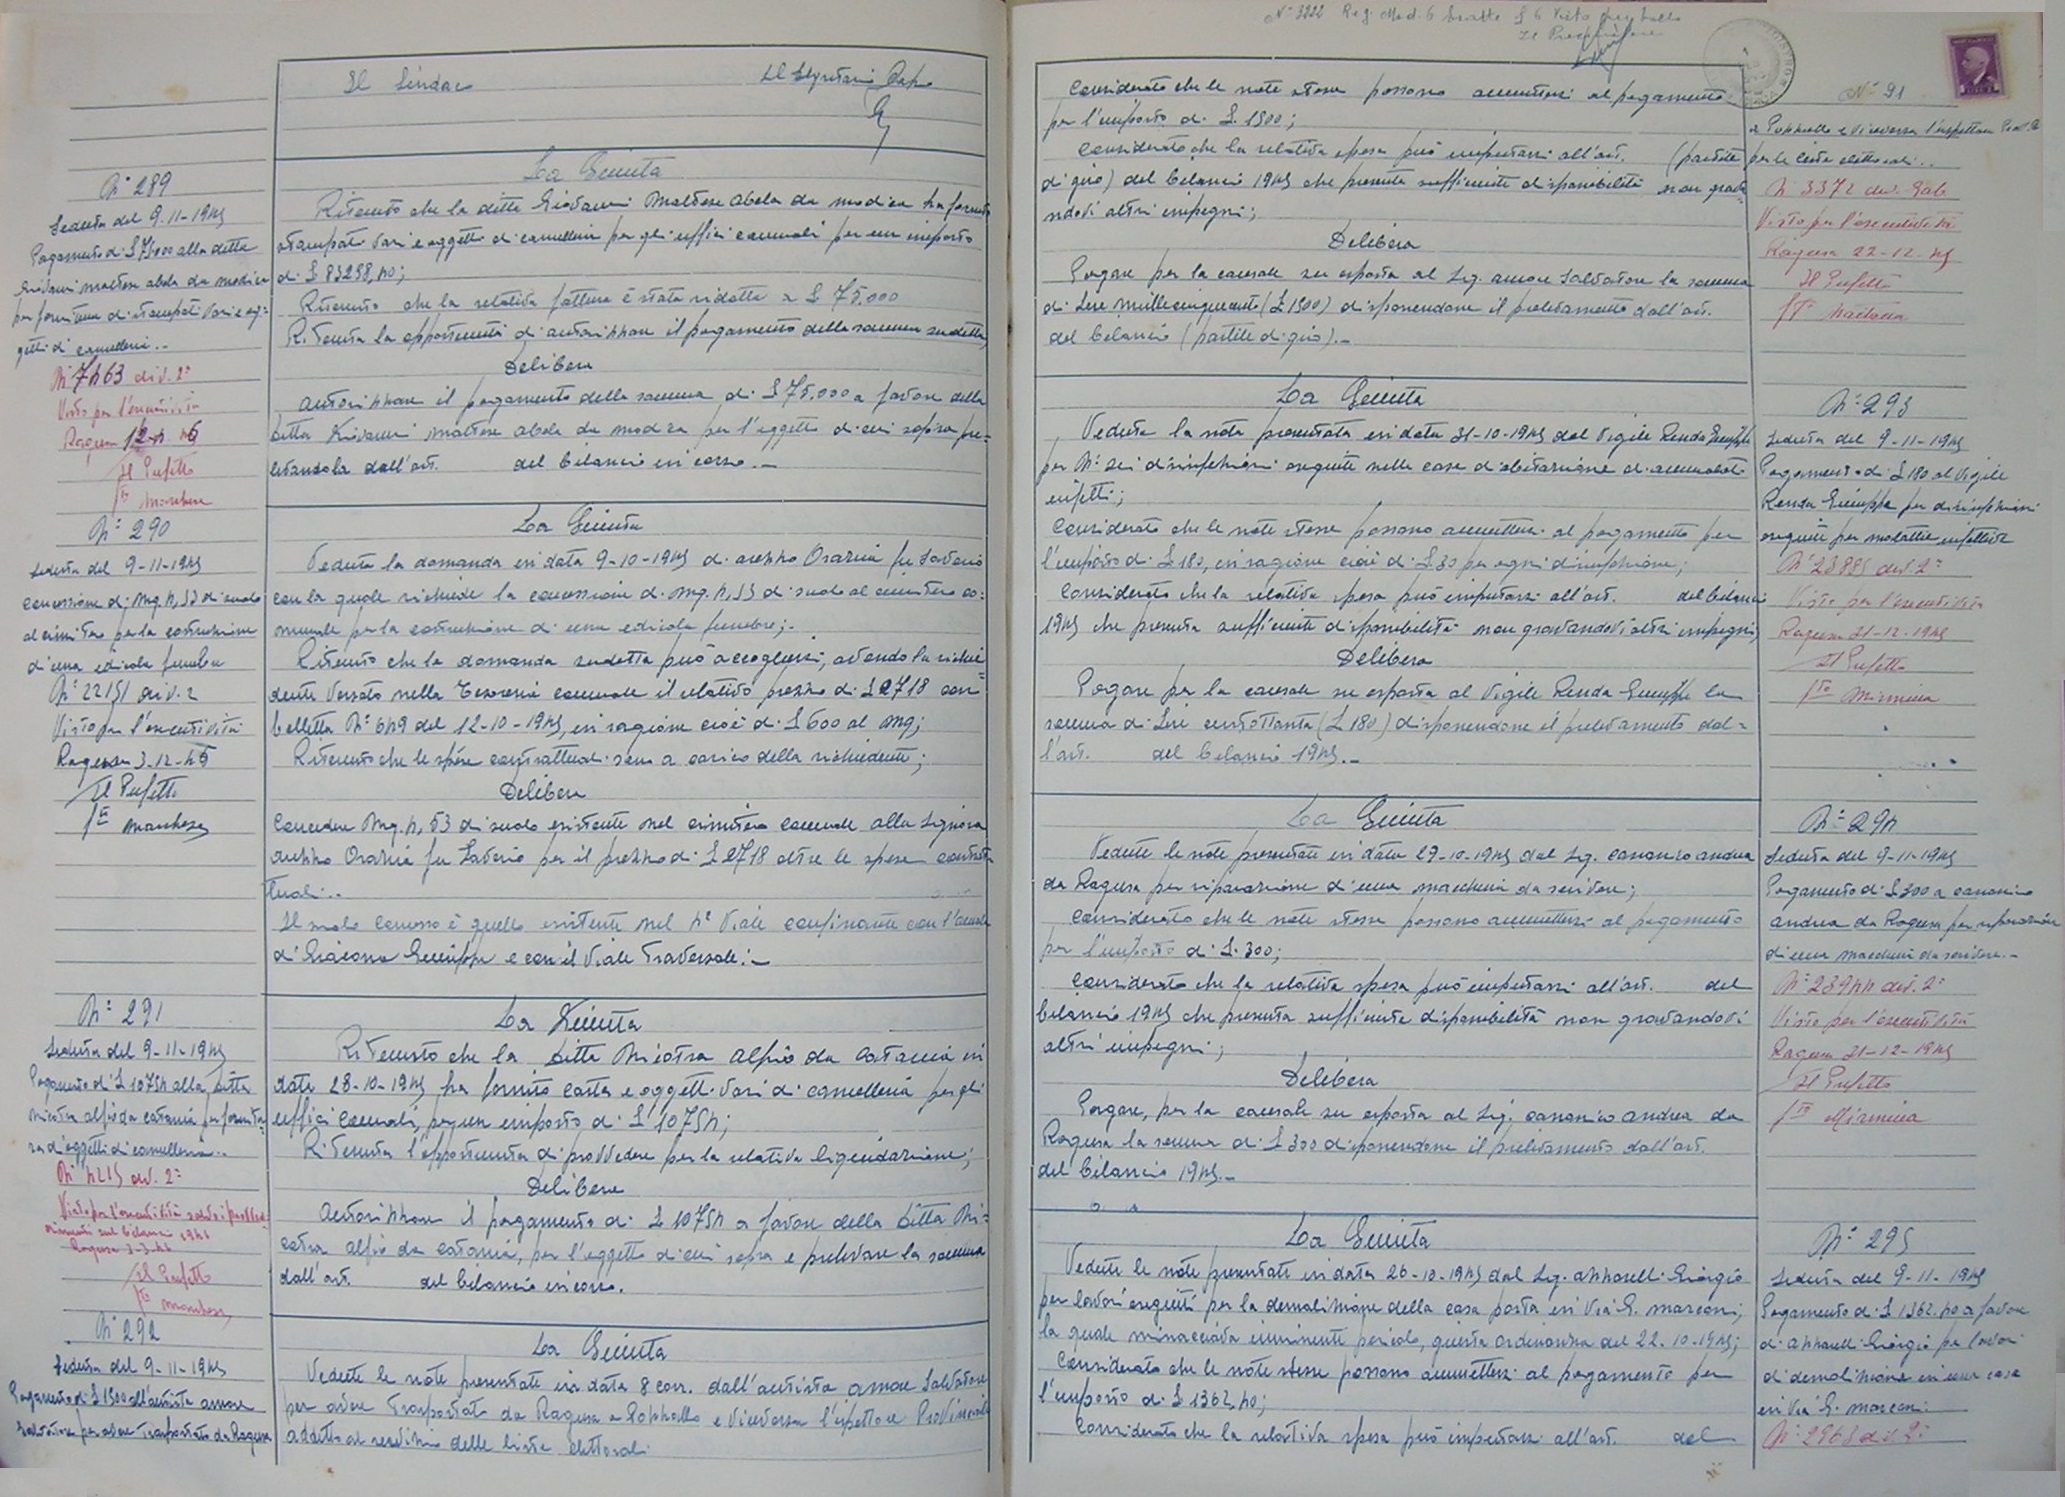 Il Sindaco
Il Segretario Capo
N° 289
Seduta del 9-11-1945
Pagamento di £ 75000 alla ditta
Giovanni Maltese Abela da Modica
per fornitura di stampati vari e og-
getti di cancelleria..
N° 7463 div. 2ª
Visto per l'esecutività
Ragusa
Il Prefetto
fto Marchese
La Giunta
Ritenuto che la ditta Giovanni Maltese Abela da Modica ha fornito
stampati vari e oggetti di cancelleria per gli uffici comunali per un importo
di £ 83258,40;
Ritenuto che la relativa fattura è stata ridotta a £ 75.000
Ritenuta la opportunità di autorizzare il pagamento della somma suddetta,
Delibera
Autorizzare il pagamento della somma di £ 75.000 a favore della
Ditta Giovanni Maltese Abela da Modica per l'oggetto di cui sopra pre=
levandola dall'art. del bilancio in corso.-
N° 290
Seduta del 9-11-1945
Concessione di Mq. 4,53 di suolo
al cimitero per la costruzione
d'una edicola funebre
N° 22151 div. 2
Visto per l'esecutività
Ragusa 3-12-45
Il Prefetto
fto Marchese
La Giunta
Veduta la domanda in data 9-10-1945 di Arezzo Orazia fu Saverio
con la quale richiede la concessione di Mq. 4,53 di suolo al cimitero co=
munale per la costruzione di una edicola funebre;.
Ritenuto che la domanda sudetta può accogliersi, avendo la richie
dente versato nella Tesoreria comunale il relativo prezzo di £ 2718 con
bolletta N° 649 del 12-10-1945, in ragione cioè di £ 600 al mq;
Ritenuto che le spese contrattuali sono a carico della richiedente;
Delibera
Concedere Mq. 4,53 di suolo esistente nel cimitero comunale alla Signora
Arezzo Orazia fu Saverio per il prezzo di £ 2718 oltre le spese contrat
tuali..
Il suolo concesso è quello esistente nel 4° Viale confinante con l'
di Giacona Giuseppe e con il Viale Traversale.-
N° 291
Seduta del 9-11-1945
Pagamento di £ 10754 alla Ditta
Nicotra Alfio da Catania per fornitu-
ra d'oggetti di cancelleria..
N° 4215 div. 2ª
Visto per l'esecutività
Il Prefetto
fto Marchese
La Giunta
Ritenuto che la Ditta Nicotra Alfio da Catania in
data 28-10-1945 ha fornito carta e oggetti vari di cancelleria per gli
uffici comunali, per un importo di £ 10754;
Ritenuta l'opportunità di provvedere per la relativa liquidazione;
Delibera
Autorizzare il pagamento di £ 10754 a favore della Ditta Ni=
cotra Alfio da Catania, per l'oggetto di cui sopra e prelevare la somma
dall'art. del bilancio in corso.
N° 292
Seduta del 9-11-1945
Pagamento di £ 1500 all'autista Amore
Salvatore per avere trasportato da Ragusa
La Giunta
Vedute le note presentate in data 8 corr. dall'autista Amore Salvatore
per avere trasportato da Ragusa a Pozzallo e viceversa l'ispettore Provinciale
addetto al servizio delle liste elettorali.
N° 3222 Reg. Mod.
Considerato che le note stesse possono ammettersi al pagamento
per l'importo di £. 1500;
Considerato che la relativa spesa può imputarsi all'art. (partite
di giro) del bilancio 1945 che presenta sufficiente disponibilità non grava
ndovi altri impegni;
Delibera
Pagare per la causale su esposta al Sig. Amore Salvatore la somma
di Lire millecinquecento (£ 1500) disponendone il prelevamento dall'art.
del bilancio (partite di giro).-
N° 91
a Pozzallo e viceversa l'ispettore
per le liste elettorali..
N° 3372 div. Gab
Visto per l'esecutività
Ragusa 22-12-45
Il Prefetto
La Giunta
Veduta la nota presentata in data 31-10-1945 dal Vigile Renda Giuseppe
per N° sei disinfezioni eseguite nelle case d'abitazione di ammalati
infetti;
Considerato che le note stesse possono ammettersi al pagamento per
l'importo di £ 180, in ragione cioè di £ 30 per ogni disinfezione;
Considerato che la relativa spesa può imputarsi all'art. del bilancio
1945 che presenta sufficiente disponibilità non gravandovi altri impegni;
Delibera
Pagare per la causale su esposta al Vigile Renda Giuseppe la
somma di Lire centottanta (£ 180) disponendone il prelevamento dal=
l'art. del bilancio 1945.-
N° 293
Seduta del 9-11-1945
Pagamento di £ 180 al Vigile
Renda Giuseppe per disinfezioni
eseguite per malattie infettive
N° 23885 div. 2ª
Visto per l'esecutività
Ragusa 31-12-1945
Il Prefetto
fto Mirmina
La Giunta
Vedute le note presentate in data 29-10-1945 dal Sig. Canonico Andrea
da Ragusa per riparazione d'una macchina da scrivere;
Considerato che le note stesse possono ammettersi al pagamento
per l'importo di £. 300;
Considerato che la relativa spesa può imputarsi all'art. del
bilancio 1945 che presenta sufficiente disponibilità non gravandovi
altri impegni;
Delibera
Pagare, per la causale su esposta al Sig. Canonico Andrea da
Ragusa la somma di £ 300 disponendone il prelevamento dall'art.
del bilancio 1945.-
N° 294
Seduta del 9-11-1945
Pagamento di £ 300 a Canonico
Andrea da Ragusa per riparazione
di una macchina da scrivere.-
N° 23944 div. 2ª
Visto per l'esecutività
Ragusa 31-12-1945
Il Prefetto
fto Mirmina
La Giunta
Vedute le note presentate in data 26-10-1945 dal Sig. Azzarelli Giorgio
per lavori eseguiti per la demolizione della casa posta in Via G. Marconi,
la quale minacciava imminente pericolo, giusta ordinanza del 22-10-1945;
Considerato che le note stesse possono ammettersi al pagamento per
l'importo di £ 1362,40;
Considerato che la relativa spesa può imputarsi all'art. del
N° 295
Seduta del 9-11-1945
Pagamento di £ 1362,40 a favore
di Azzarelli Giorgio per lavori
di demolizione in una casa
in Via G. Marconi